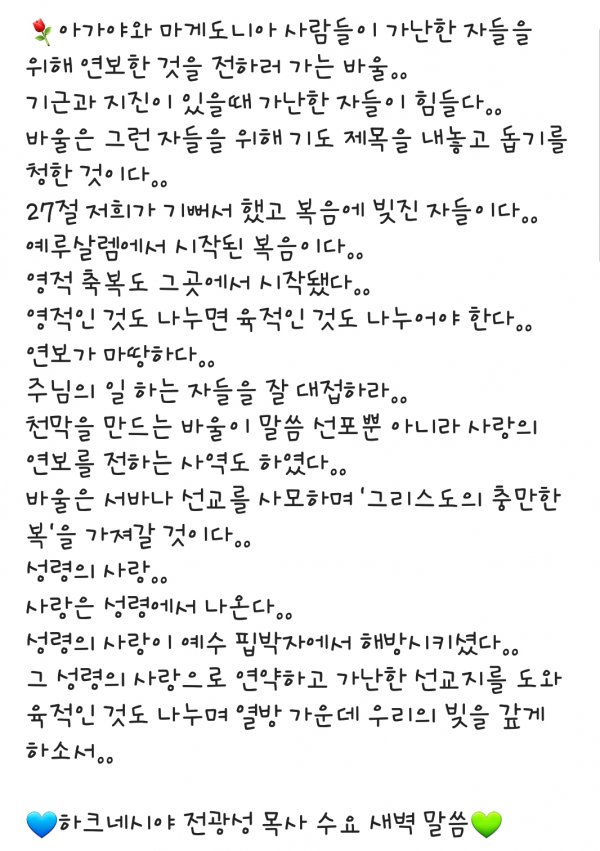 🌹아가야와 마게도니아 사람들이 가난한 자들을
위해 연보한 것을 전하러 가는 바울。。
기근과 지진이 있을때 가난한 자들이 힘들다。。
바울은 그런 자들을 위해 기도 제목을 내놓고 돕기를
청한 것이다。。
27절 저희가 기뻐서 했고 복음에 빚진 자들이다。。
예루살렘에서 시작된 복음이다。。
영적 축복도 그곳에서 시작됐다。。
영적인 것도 나누면 육적인 것도 나누어야 한다。。
연보가 마땅하다。。
주님의 일 하는 자들을 잘 대접하라。。
천막을 만드는 바울이 말씀 선포뿐 아니라 사랑의
연보를 전하는 사역도 하였다。。
바울은 서바나 선교를 사모하며 '그리스도의 충만한
복'을 가져갈 것이다。。
성령의 사랑。。
사랑은 성령에서 나온다。。
성령의 사랑이 예수 핍박자에서 해방시키셨다。。
그 성령의 사랑으로 연약하고 가난한 선교지를 도와
육적인 것도 나누며 열방 가운데 우리의 빚을 갚게
하소서。。
💙하크네시야 전광성 목사 수요 새벽 말씀💚